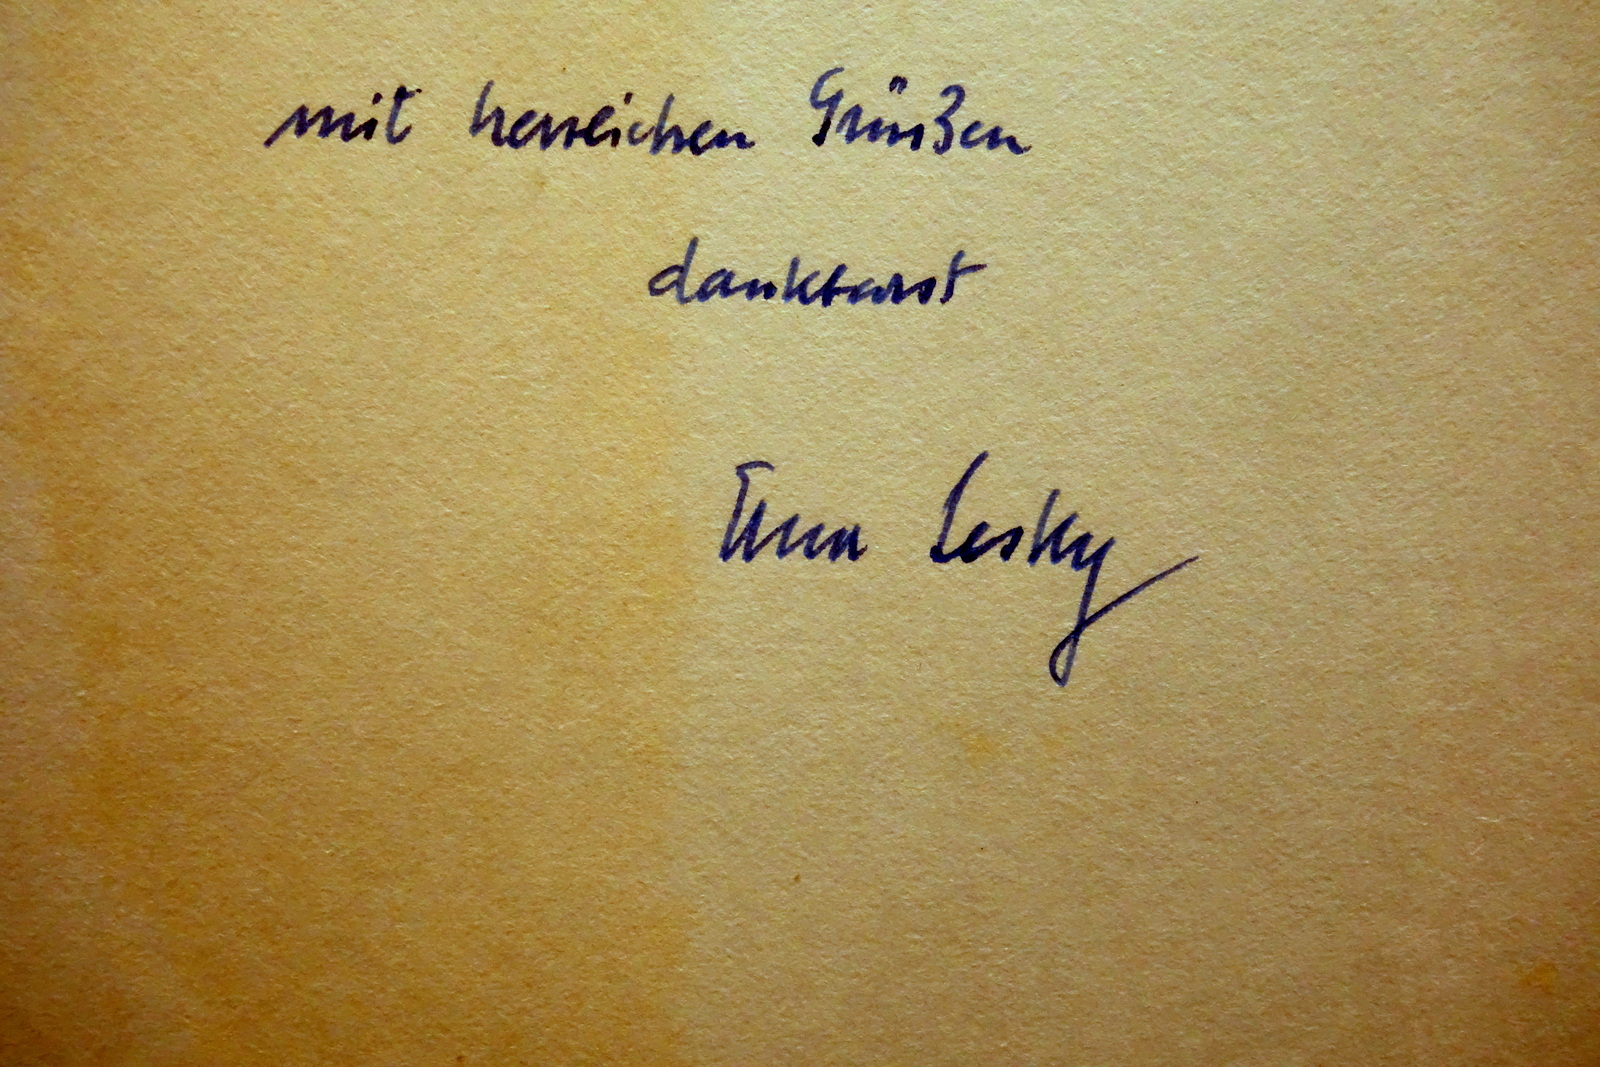 mit herzlichen Grüßen
dankbarst
Erna Lesky